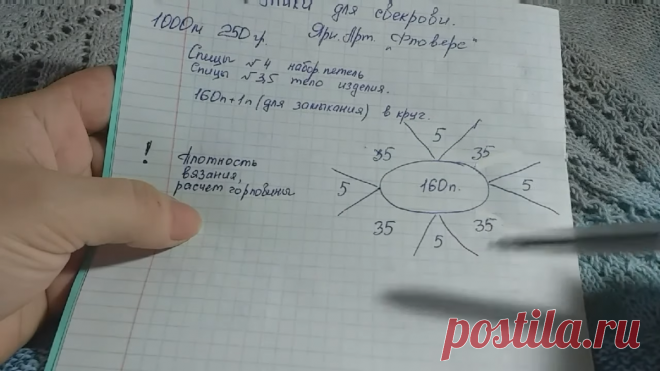 для свекрови.
1000м 250гр. Ярн.Арт. "Фловерс"
Спицы №4 набор петель
Спицы №3,5 тело изделия.
160п+1п (для замыкания) в круг.
5
35 35
! Плотность
вязания,
расчет горловины
5 160п. 5
35 35
5
postila.ru